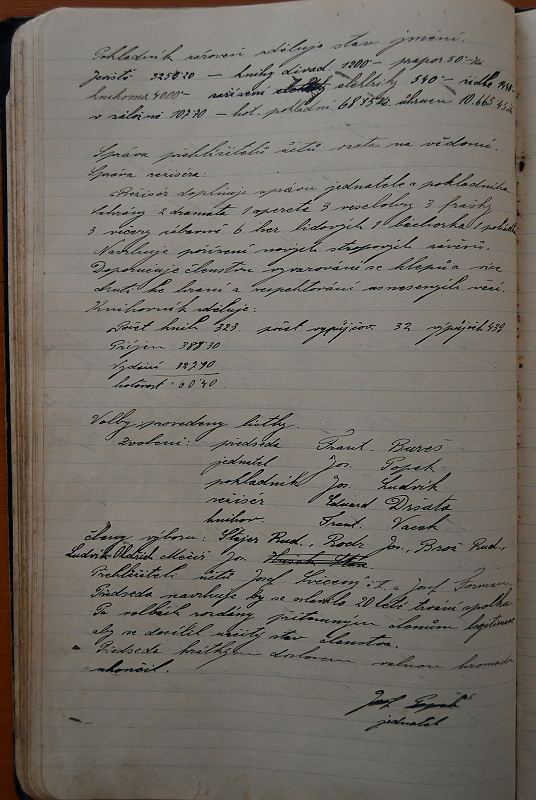 Pokladník zároveň sděluje stav jmění.
Jeviště 3258 20 – knihy divad. 1200 – prapor 50
knihovna 4000 – zařízení elektriky 540 –
v záložně 1070 – hot. pokladní 68 75 úhrnem 10.665
Správa přehlížitelů účtů vzata na vědomí.
Správa režiséra:
Režisér doplňuje zprávu jednatele a pokladníka
Sehrány 2 dramata 1 opereta 3 veselohry 3 frašky
3 večery zábavné 6 her lidových 1 báchorka 1
Navrhuje pořízení nových stropových
Doporučuje členstvu vyvarování se klepů a více
chuti ke hraní a respektování usnesených věcí.
Knihovník sděluje:
Počet knih 323. počet vypůjčov. 32 výpůjček 439
Příjem 388 30
Vydání 327 90
hotovost 60 40
Volby: provedeny lístky.
Zvoleni: předseda Frant. Bureš
jednatel Jos. Popek
pokladník Jos. Ludvík
režisér Eduard Dršata
knihov. Frant. Vacek
členy výboru: Stejer Rud., Jos., Brož Rud.,
Ludvík Oldřich Jos.
Přehlížiteli účtů Josef st. a Josef Forman
Předseda navrhuje by se oslavilo 20 leté trvání spolku
Po volbách rozdány přítomným členům legitimace
aby se docílil určitý stav členstva.
Předseda krátkým doslovem valnou hromadu
ukončil.
Josef Popek
jednatel